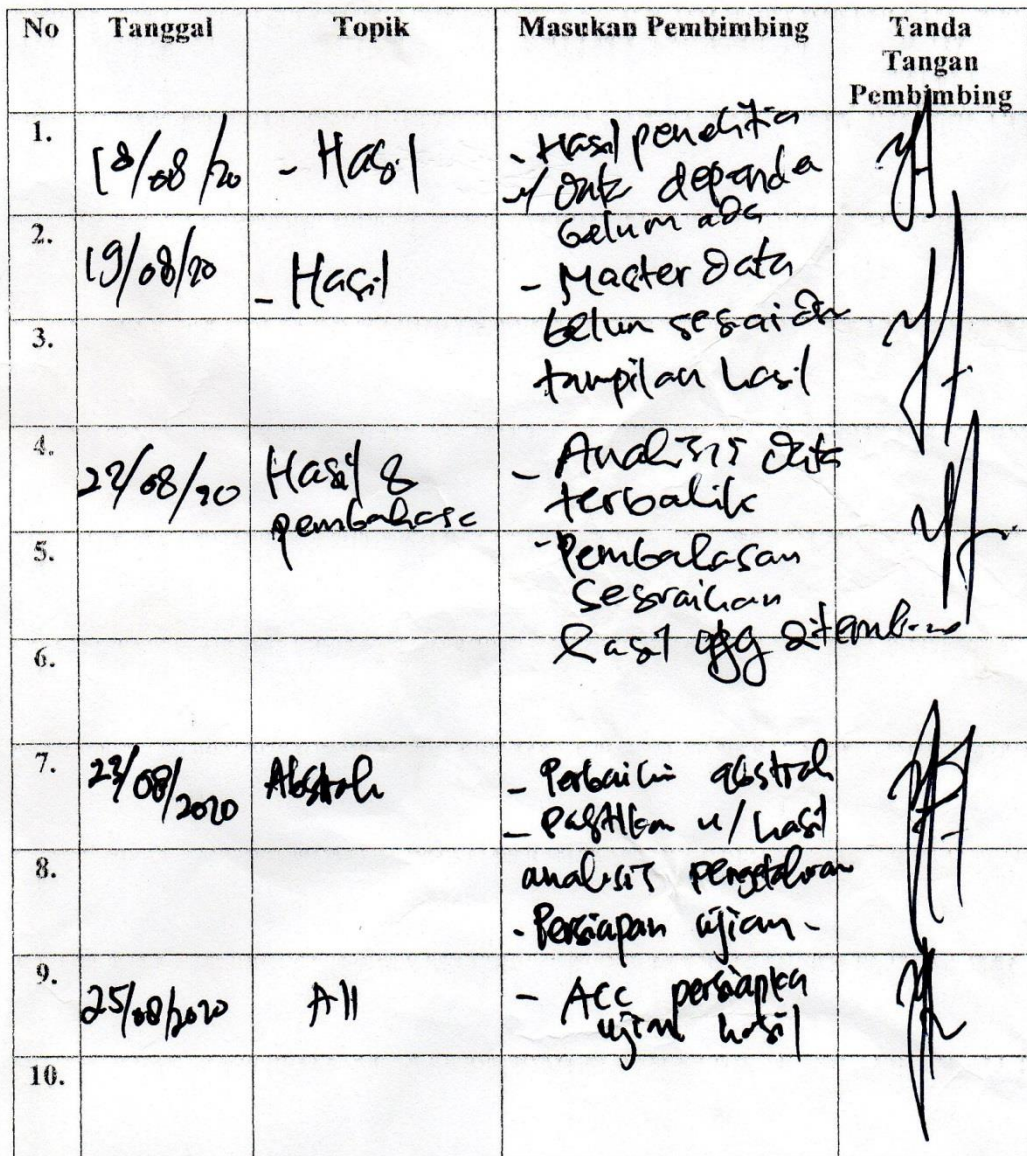 No Tanggal Topik Masukan Pembimbing Tanda
Tangan
Pembimbing
1. 18/08/20 - Hasil - Hasil penelitia
u/ data dependen
belum ada
2. 19/08/20 - Hasil - Master data
3. belum sesuai dn
tampilan hasil
4. 22/08/20 Hasil & - Analisis data
pembahasa terbalik
5. - Pembahasan
sesuaikan
6. hasil yg ditemukan
7. 23/08/2020 Abstrak - Perbaiki abstrak
- Pastikan u/ hasil
8. analisis pengetahuan
- Persiapan ujian -
9. 25/08/2020 All - Acc persiapka
ujian hasil
10.